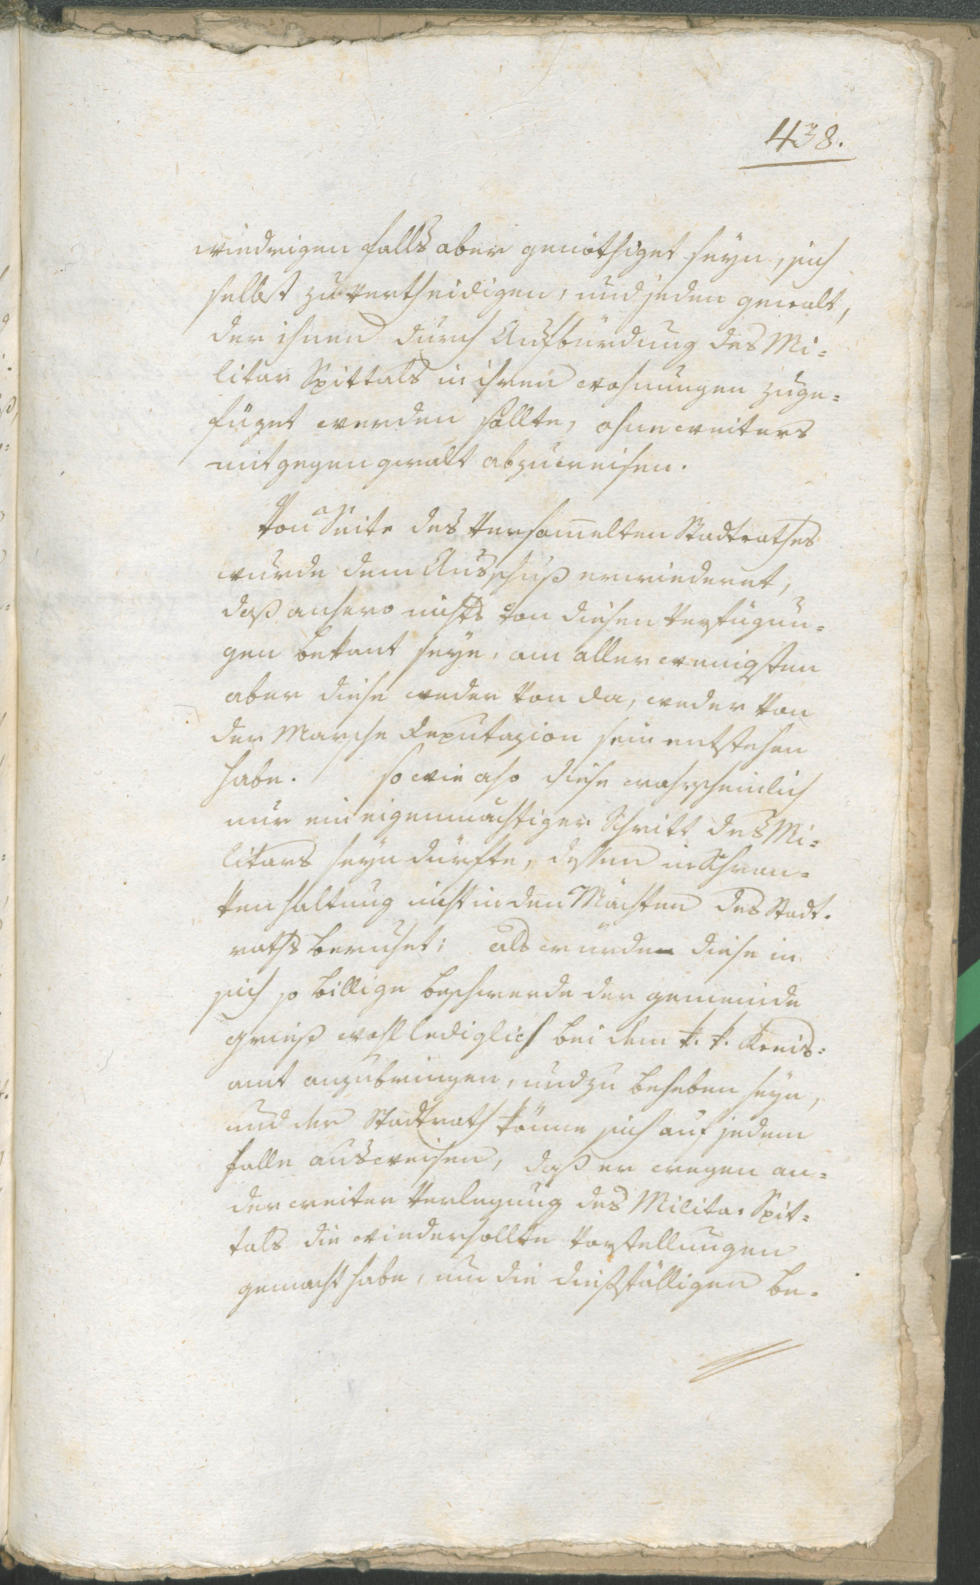 438.
wiedrigen Falls aber genöthiget seyn, sich
selbst zu vertheidigen, und jeden gewalt,
der ihnen durch Aufbürdung des Mi=
litar Spittals in ihren wohnungen zuge=
füget werden sollte, ohne weiters
mit gegengewalt abzuweisen.
Von Seite des versam̅elten Stadtrathes
wurde dem Ausschuß erwiederet,
daß anhero nichts von diesen Verfügun=
gen bekant seye, am allerwenigsten
aber diese weder von da, weder von
der Marsche Deputazion sein entstehen
habe. so wie also diese wahrscheinlich
nur ein eigenmächtiger Schritt des Mi=
litars seyn dürfte, dessen in Schran=
ken haltung nicht in den Mächten des Stadt=
raths beruhet; als wurden diese in
sich so billige beschwerde der gemeinde
gries wohl lediglich bei dem k. k. Kreis=
amt anzubringen, und zu beheben seyn,
und der Stadtrath könne sich auf jedem
Falle ausweisen, daß er wegen an=
derweiter Verlegung des Militar Spit=
tals die wiederhollte Vorstellungen
gemacht habe, um die dießfälligen be=